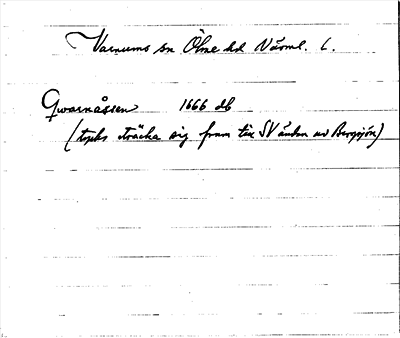 Varnums sn Ölme hd Värml. l.
Qwarnåssen 1666 db
(tycks sträcka sig fram till SV änden av Bergsjön)